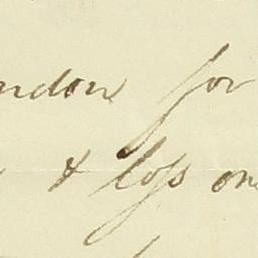 ndon for
& loss on